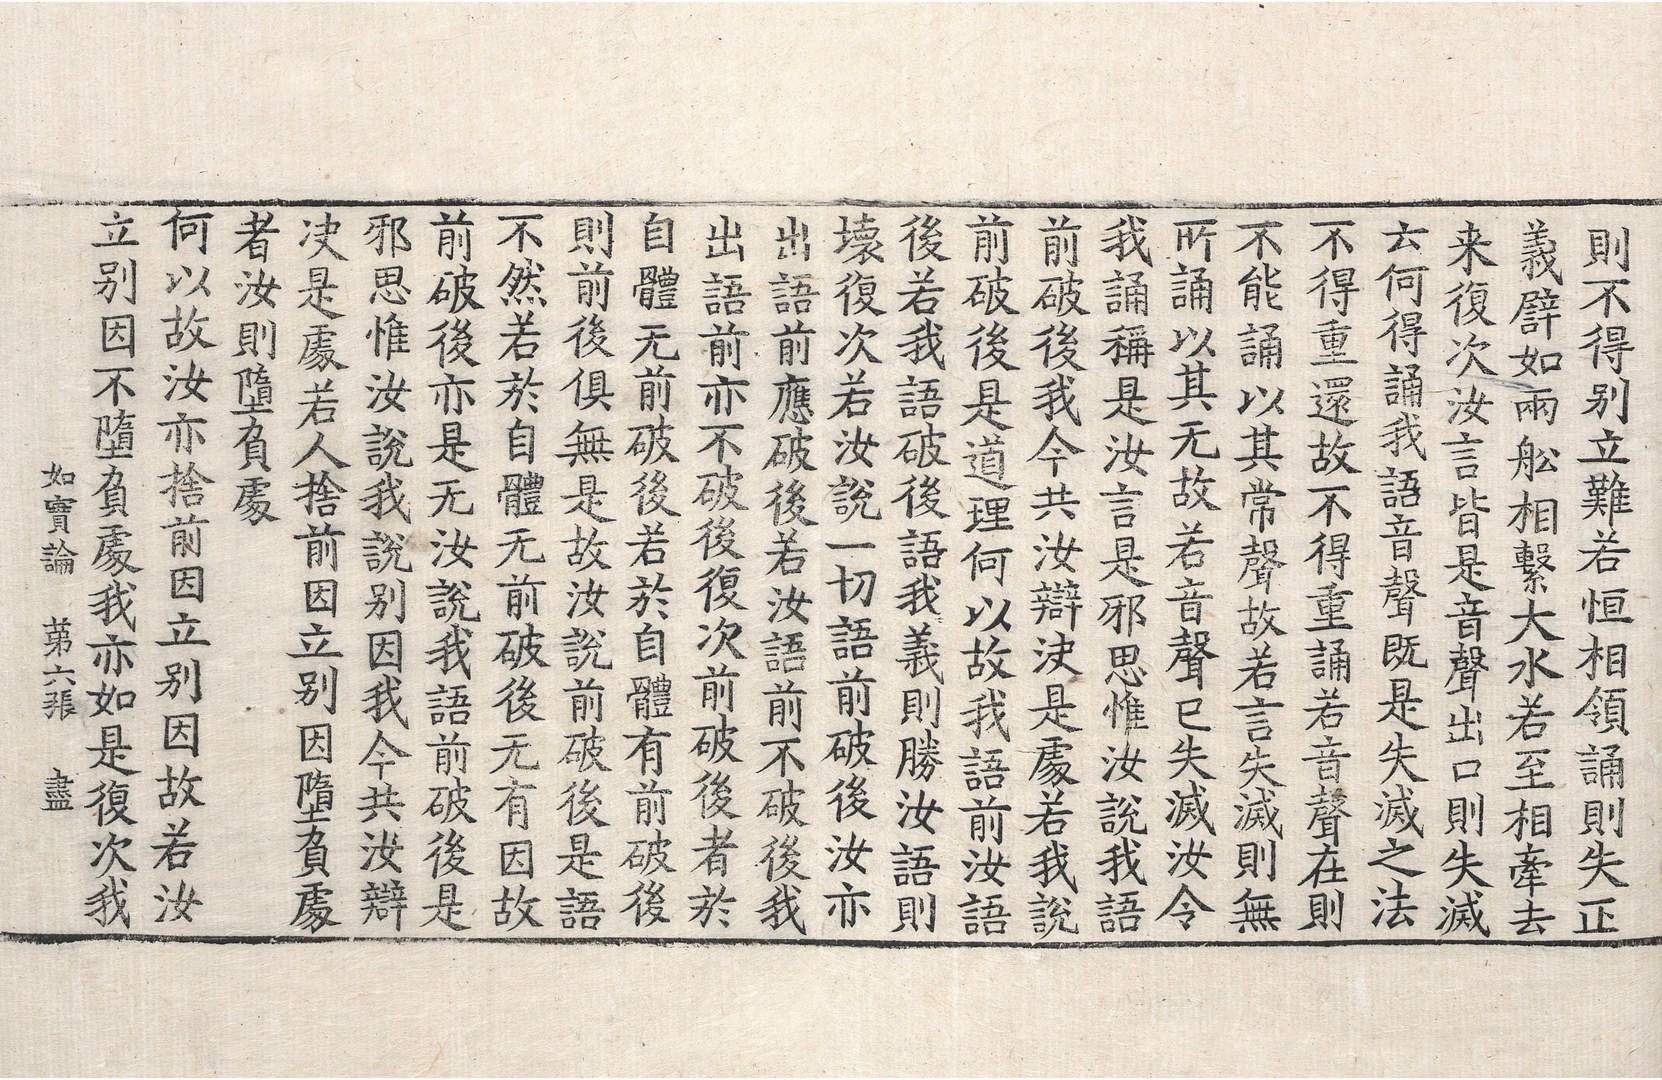 則不得别立難若恒相領誦則失正
義譬如兩舩相繫大水若至相牽去
来復次汝言皆是音聲出口則失滅
云何得誦我語音聲既是失滅之法
不得重還故不得重誦若音聲在則
不能誦以其常聲故若言失滅則無
所誦以其无故若音聲已失滅汝令
我誦稱是汝言是邪思惟汝說我語
前破後我今共汝辯决是處若我說
前破後是道理何以故我語前汝語
後若我語破後語我義則勝汝語則
壞復次若汝說一切語前破後汝亦
出語前應破後若汝語前不破後我
出語前亦不破後復次前破後者於
自體无前破後若於自體有前破後
則前後俱無是故汝說前破後是語
不然若於自體无前破後无有因故
前破後亦是无汝說我語前破後是
邪思惟汝說我說别因我今共汝辯
决是處若人捨前因立别因墮負處
者汝則墮負處
何以故汝亦捨前因立别因故若汝
立别因不墮負處我亦如是復次我
如實論　苐六張　盡